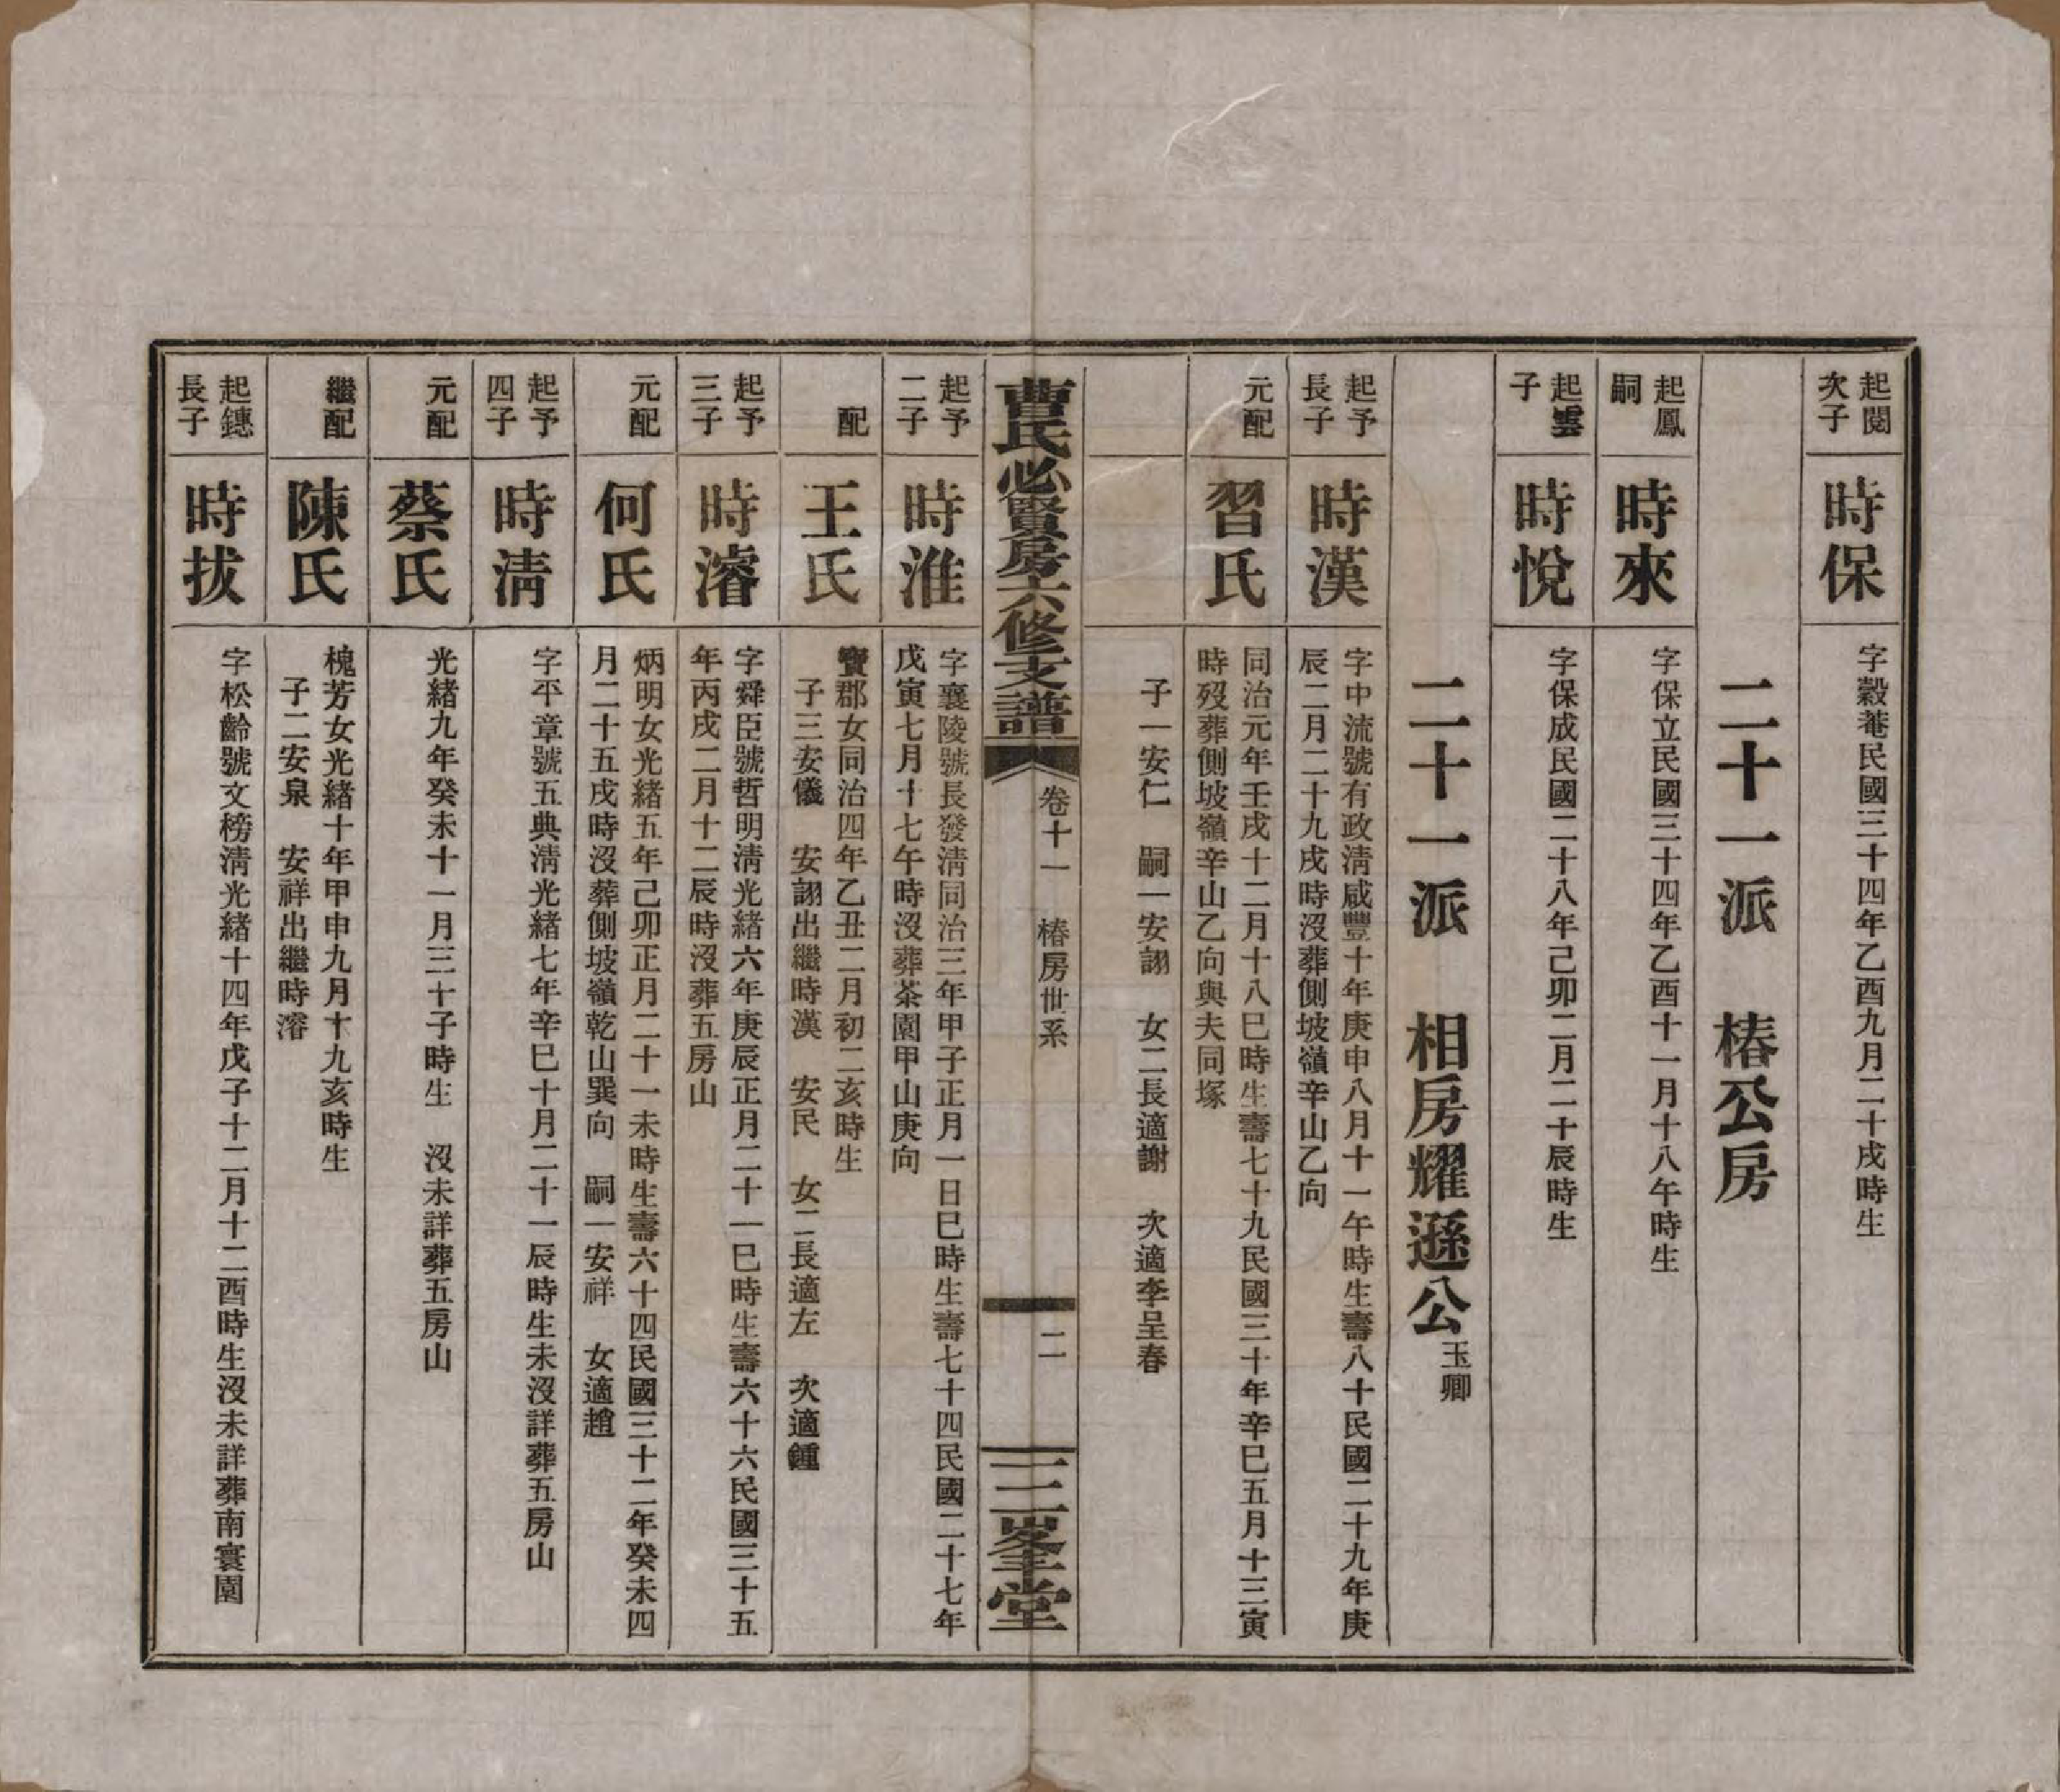 起閱
次子
時保
字穀菴民國三十四年乙酉九月二十戌時生
二十一派　椿公房
起鳳
嗣
時來
字保立民國三十四年乙酉十一月十八午時生
起雲
子
時悅
字保成民國二十八年己卯二月二十辰時生
二十一派　相房耀遜公玉卿
起予
長子
時漢
字中流號有政淸咸豐十年庚申八月十一午時生壽八十民國二十九年庚
辰二月二十九戌時沒葬側坡嶺辛山乙向
元配
習氏
同治元年壬戌十二月十八巳時生壽七十九民國三十年辛巳五月十三寅
時歿葬側坡嶺辛山乙向與夫同塚
子一安仁　嗣一安詡　女二長適謝　次適李呈春
曹氏必賢房六修支譜
卷十一　椿房世系
二
三峯堂
起予
二子
時淮
字襄陵號長發淸同治三年甲子正月一日巳時生壽七十四民國二十七年
戊寅七月十七午時沒葬茶園甲山庚向
配
王氏
寶郡女同治四年乙丑二月初二亥時生
子三安儀　安詡出繼時漢　安民　女二長適左　次適鍾
起予
三子
時濬
字舜臣號哲明淸光緒六年庚辰正月二十一巳時生壽六十六民國三十五
年丙戌二月十二辰時沒葬五房山
元配
何氏
炳明女光緒五年己卯正月二十一未時生壽六十四民國三十二年癸未四
月二十五戌時沒葬側坡嶺乾山巽向　嗣一安祥　女適趙
起予
四子
時淸
字平章號五典淸光緒七年辛巳十月二十一辰時生未沒詳葬五房山
元配
蔡氏
光緒九年癸未十一月三十子時生　沒未詳葬五房山
繼配
陳氏
槐芳女光緒十年甲申九月十九亥時生
子二安泉　安祥出繼時濬
起鏸
長子
時拔
字松齡號文榜淸光緒十四年戊子十二月十二酉時生沒未詳葬南寰園